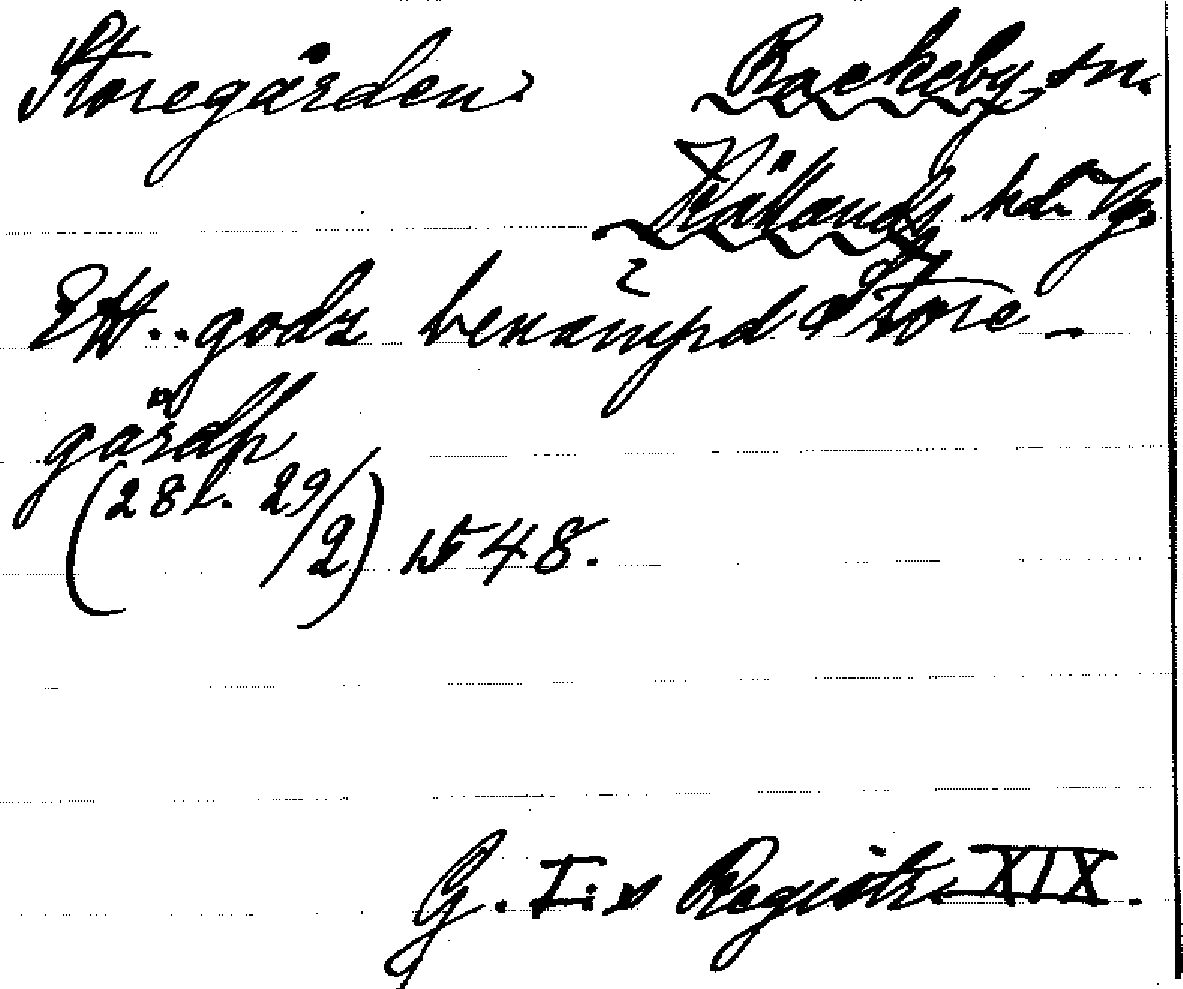 Storegården Rackeby sn.
Kållands hd. Vg.
Ett .. godz benämpd Store-
gårdh
(281. 29/2) nt 48.
G. I:s Registr. XIX.